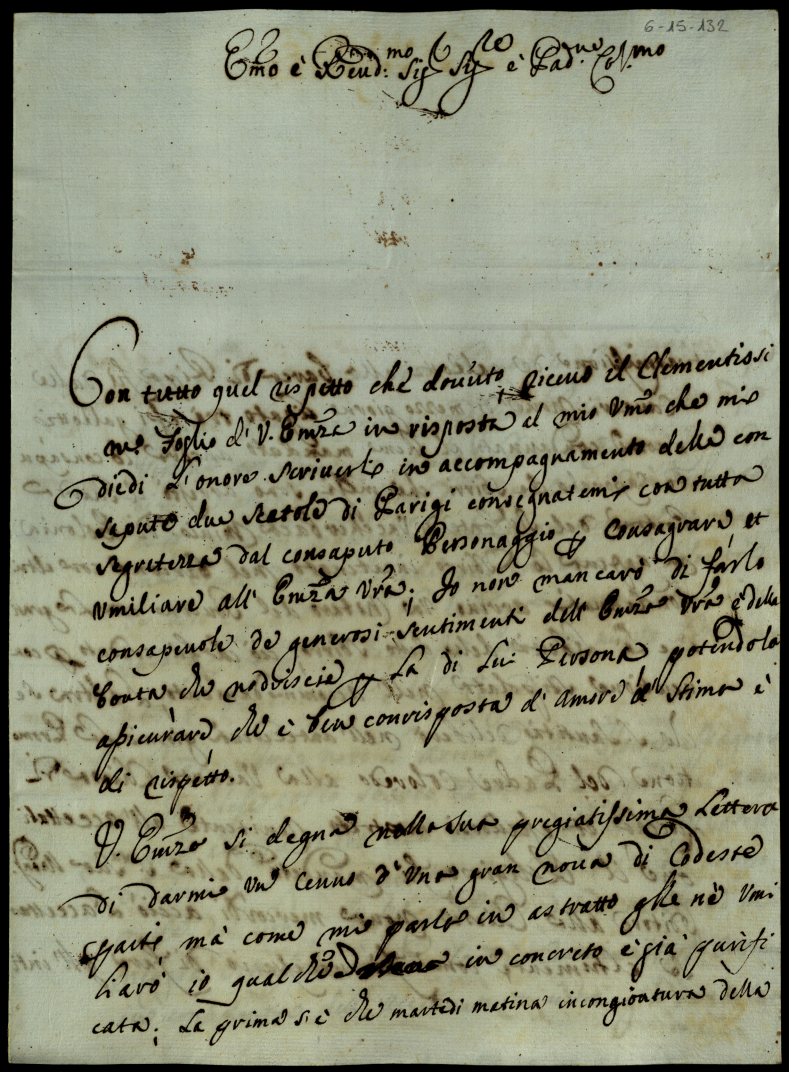 6-15-132
Emo è Reud:mo Sig Sig.re è Pad.ne Col.mo
Con tutto quel rispetto che douuto riceuo il Clementissi
mo Foglio di V. Emza in risposta al mio Vmo che mi
diedi L'onore scriuerle in accompagnamento delle con
sapute due scatole di Parigi consegnatemi con tutta
segretezza dal consaputo Personaggio p consagrare et
vmiliare all' Emza Vra; Io non mancarò di farlo
consapeuole de generosi sentimenti dell' Emza Vra è della
bontà che nodriscie p La di Lui Persona potendolo
assicurare che è ben corrisposta d' Amore è Stima è
di rispetto.
V. Emza si degna nella sua pregiatissima Lettera
di darmi un Cenno d' vna gran noua di Codeste
parti mà come mi parla in astratto glle nè vmi
liarò io qualche in concreto è già purifi
cata; La prima si è che martedi matina incongiontura della